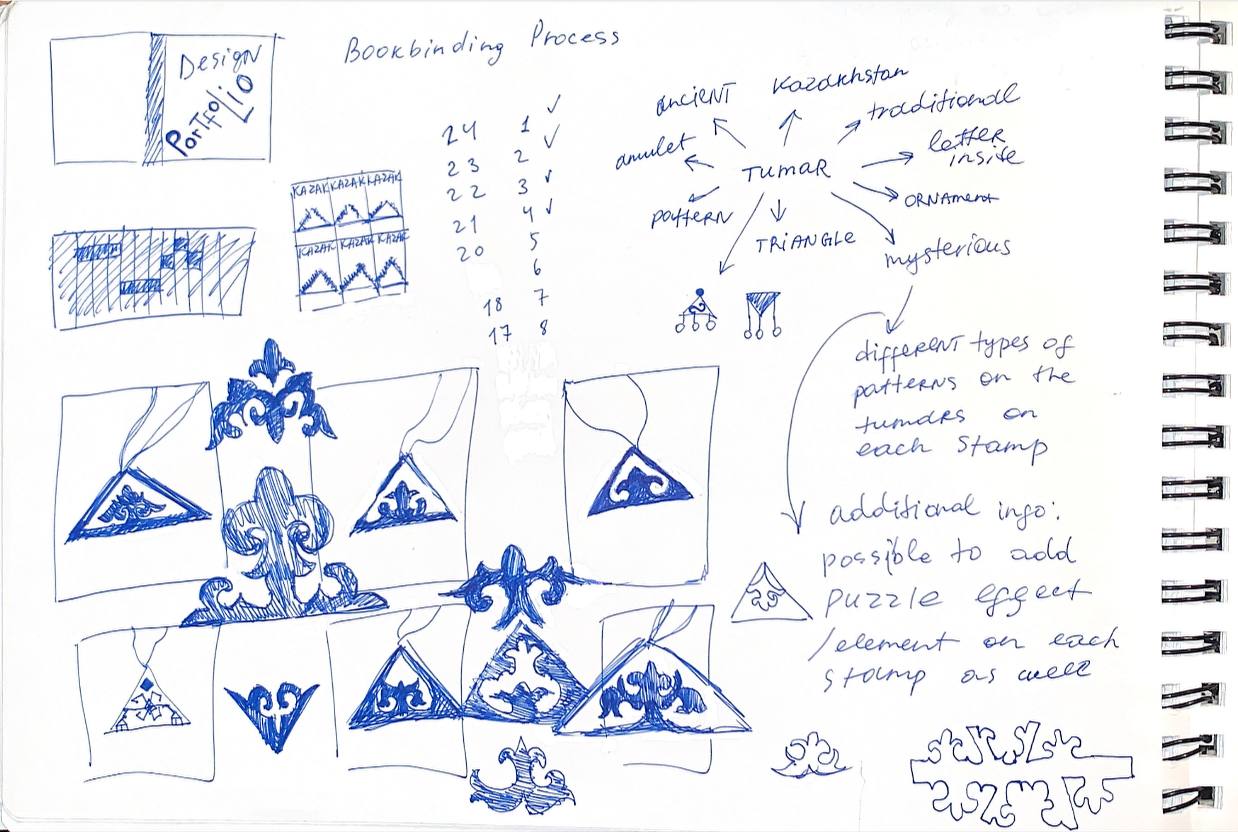 Design
Portfolio
Bookbinding Process
24 1 ✓
23 2 ✓
22 3 ✓
21 4 ✓
20 5
6
18 7
17 8
KAZAK KAZAK KAZAK
KAZAK KAZAK KAZAK
ancient
Kazakhstan
traditional
amulet
TUMAR
letter
inside
pattern
TRIANGLE
ORNament
mysterious
different types of
patterns on the
tumars on
each stamp
additional info:
possible to add
puzzle effect
/element on each
stamp as well